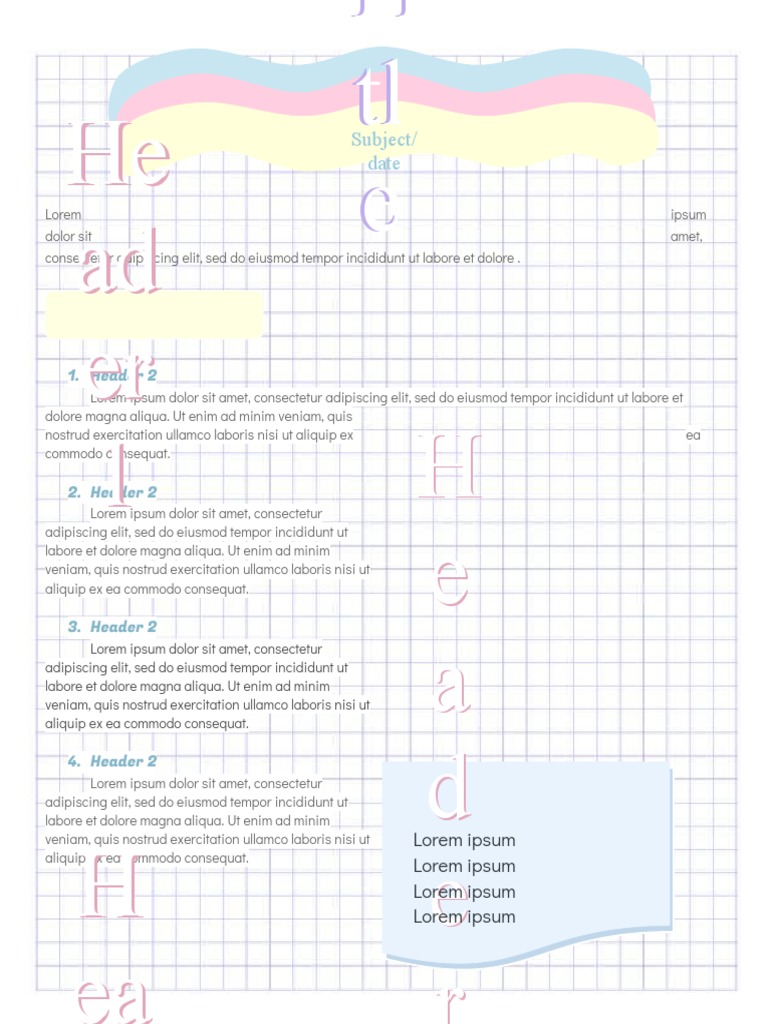 tl
e
Subject/
date
He
ad
er
1
Lorem ipsum
dolor sit amet,
adipiscing elit, sed do eiusmod tempor incididunt ut labore et dolore .
1. Header 2
Lorem ipsum dolor sit amet, consectetur adipiscing elit, sed do eiusmod tempor incididunt ut labore et
dolore magna aliqua. Ut enim ad minim veniam, quis
nostrud exercitation ullamco laboris nisi ut aliquip ex ea
commodo consequat.
2. Header 2
Lorem ipsum dolor sit amet, consectetur
adipiscing elit, sed do eiusmod tempor incididunt ut
labore et dolore magna aliqua. Ut enim ad minim
veniam, quis nostrud exercitation ullamco laboris nisi ut
aliquip ex ea commodo consequat.
3. Header 2
Lorem ipsum dolor sit amet, consectetur
adipiscing elit, sed do eiusmod tempor incididunt ut
labore et dolore magna aliqua. Ut enim ad minim
veniam, quis nostrud exercitation ullamco laboris nisi ut
aliquip ex ea commodo consequat.
4. Header 2
Lorem ipsum dolor sit amet, consectetur
adipiscing elit, sed do eiusmod tempor incididunt ut
labore et dolore magna aliqua. Ut enim ad minim
veniam, quis nostrud exercitation ullamco laboris nisi ut
aliquip ex ea commodo consequat.
H
ea
H
e
a
d
e
r
Lorem ipsum
Lorem ipsum
Lorem ipsum
Lorem ipsum